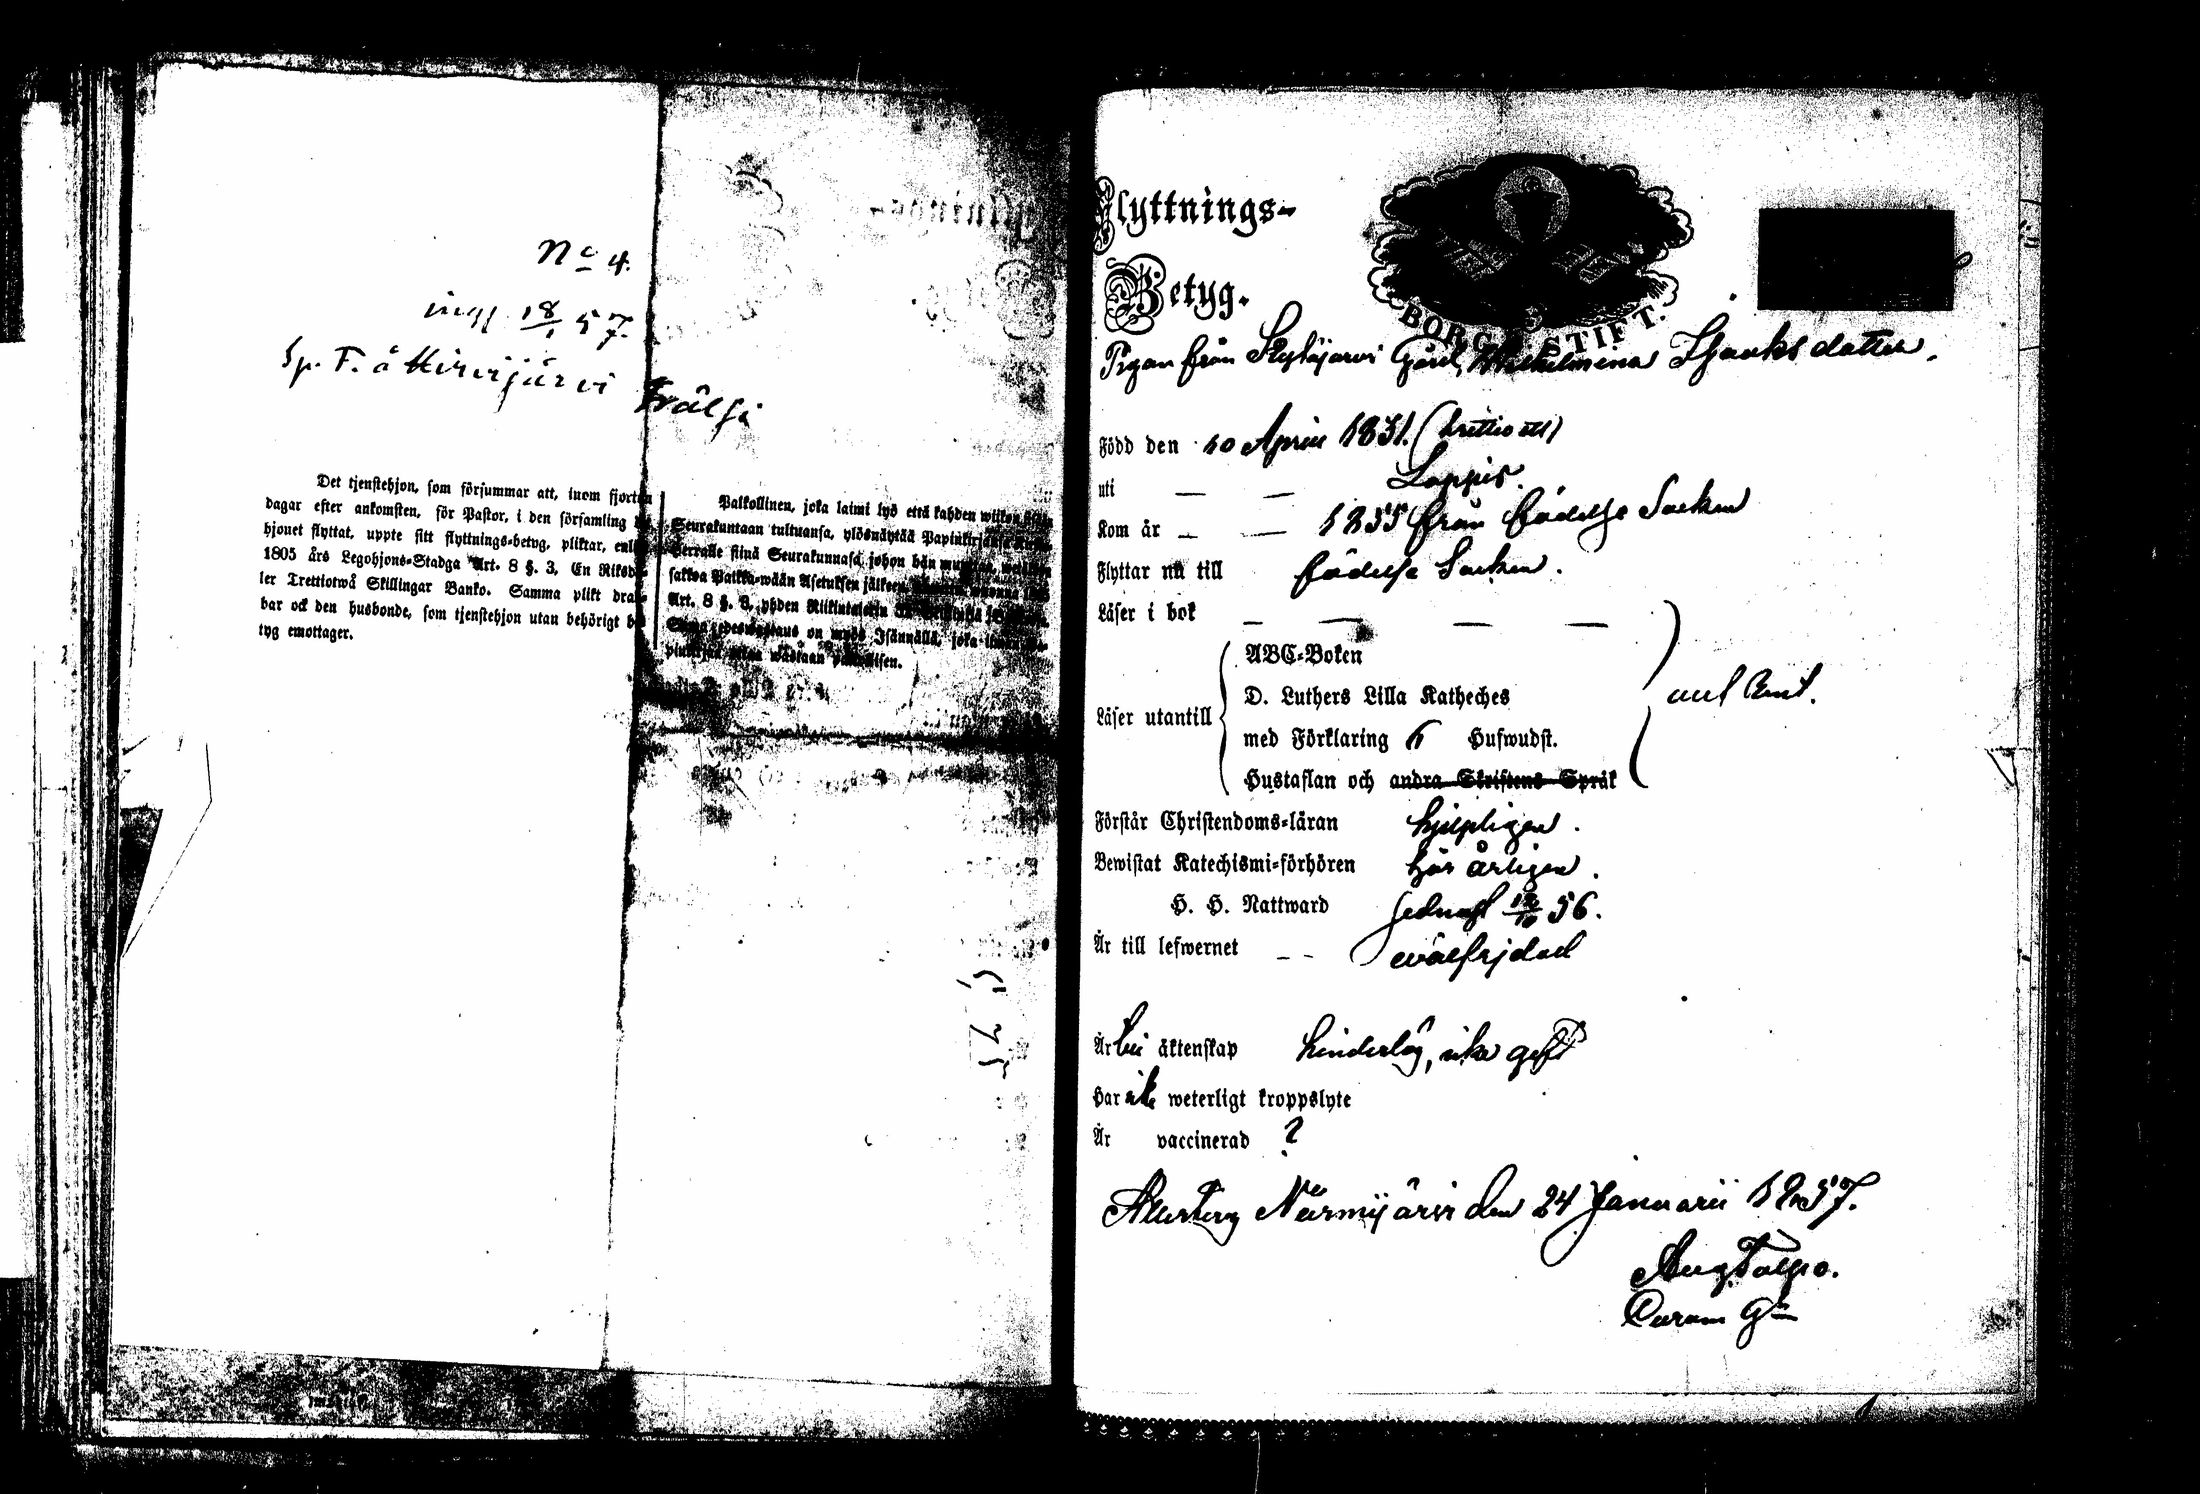 No 4.
ingf 18/1 57.
Sp. F. å Hirvijärvi
Frälse
Det tjenstehjon, som försummar att, inom fjorton
dagar efter ankomsten, för Pastor, i den församling
hjonet flyttat, uppte sitt flyttnings-betyg, pliktar, enl
1805 års Legohjons-Stadga Art. 8 §. 3, En Riksd
ler Trettiotwå Skillingar Banko. Samma plikt dra
bar ock den husbonde, som tjenstehjon utan behörigt be
tyg emottager.
Palkollinen, joka laimi lyö että kahden wiikon
Seurakuntaan tultuansa, ylösnäyttää Papinkirjansa
Herralle siinä Seurakunnasa, johon hän
sakkoa Palkka-wään Asetuksen jälkeen
Art. 8 §. 3, yhden Riikintalerin
on myös Isännällä, joka ilman
wastaan
Flyttnings-
Betyg.
BORGÅ STIFT.
Pigan från Kytäjärvi Gård, Wilhelmina Isaaksdotter.
Född den 10 April 1831. (trettio ett)
uti — — Loppis.
Kom år — — 1855 från födelse Socken
Flyttar nu till födelse Socken.
Läser i bok — — — —
ABC-Boken
D. Luthers Lilla Katheches
Läser utantill
med Förklaring 6 Hufwudst.
Hustaflan och andra Skriftens Språk
Förstår Christendoms-läran hjelpligen.
Bewistat Katechismi-förhören här årligen.
H. H. Nattward sednast 12/10 56.
Är till lefwernet - - wälfrjdad
Är till äktenskap hinderlös, icke gift
Har ik weterligt kroppslyte
Är vaccinerad ?
Nurmijärvi den 24 Januarii 1857.
Aug Talpo.